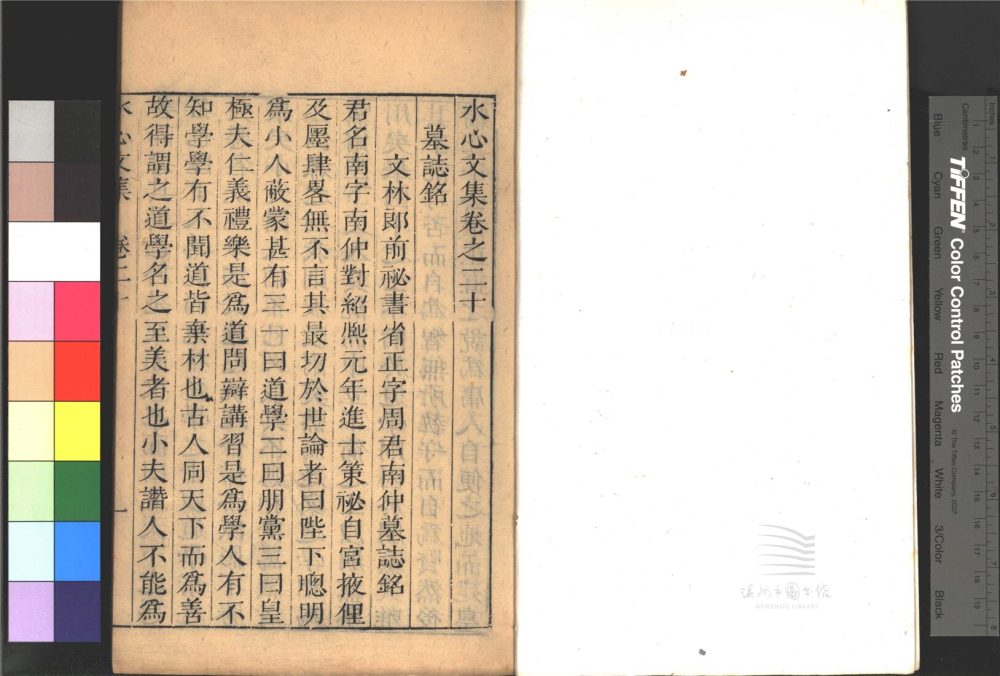 水心文集卷之二十
墓誌銘
文林郎前祕書省正字周君南仲墓誌銘
君名南字南仲對紹熈元年進士策祕自宫掖俚
及㕓肆畧無不言其最切於世論者曰陛下聰明
爲小人蔽蒙甚有三一曰道學二曰朋黨三曰皇
極夫仁義禮樂是爲道問辯講習是爲學人有不
知學學有不聞道皆棄材也古人同天下而爲善
故得謂之道學名之至美者也小夫譖人不能爲
水心文集 卷二十 一
温州市图书馆
WENZHOU LIBRARY
TIFFEN Color Control Patches
© The Tiffen Company, 2007
Centimetres
Inches
Blue
Cyan
Green
Yellow
Red
Magenta
White
3/Color
Black